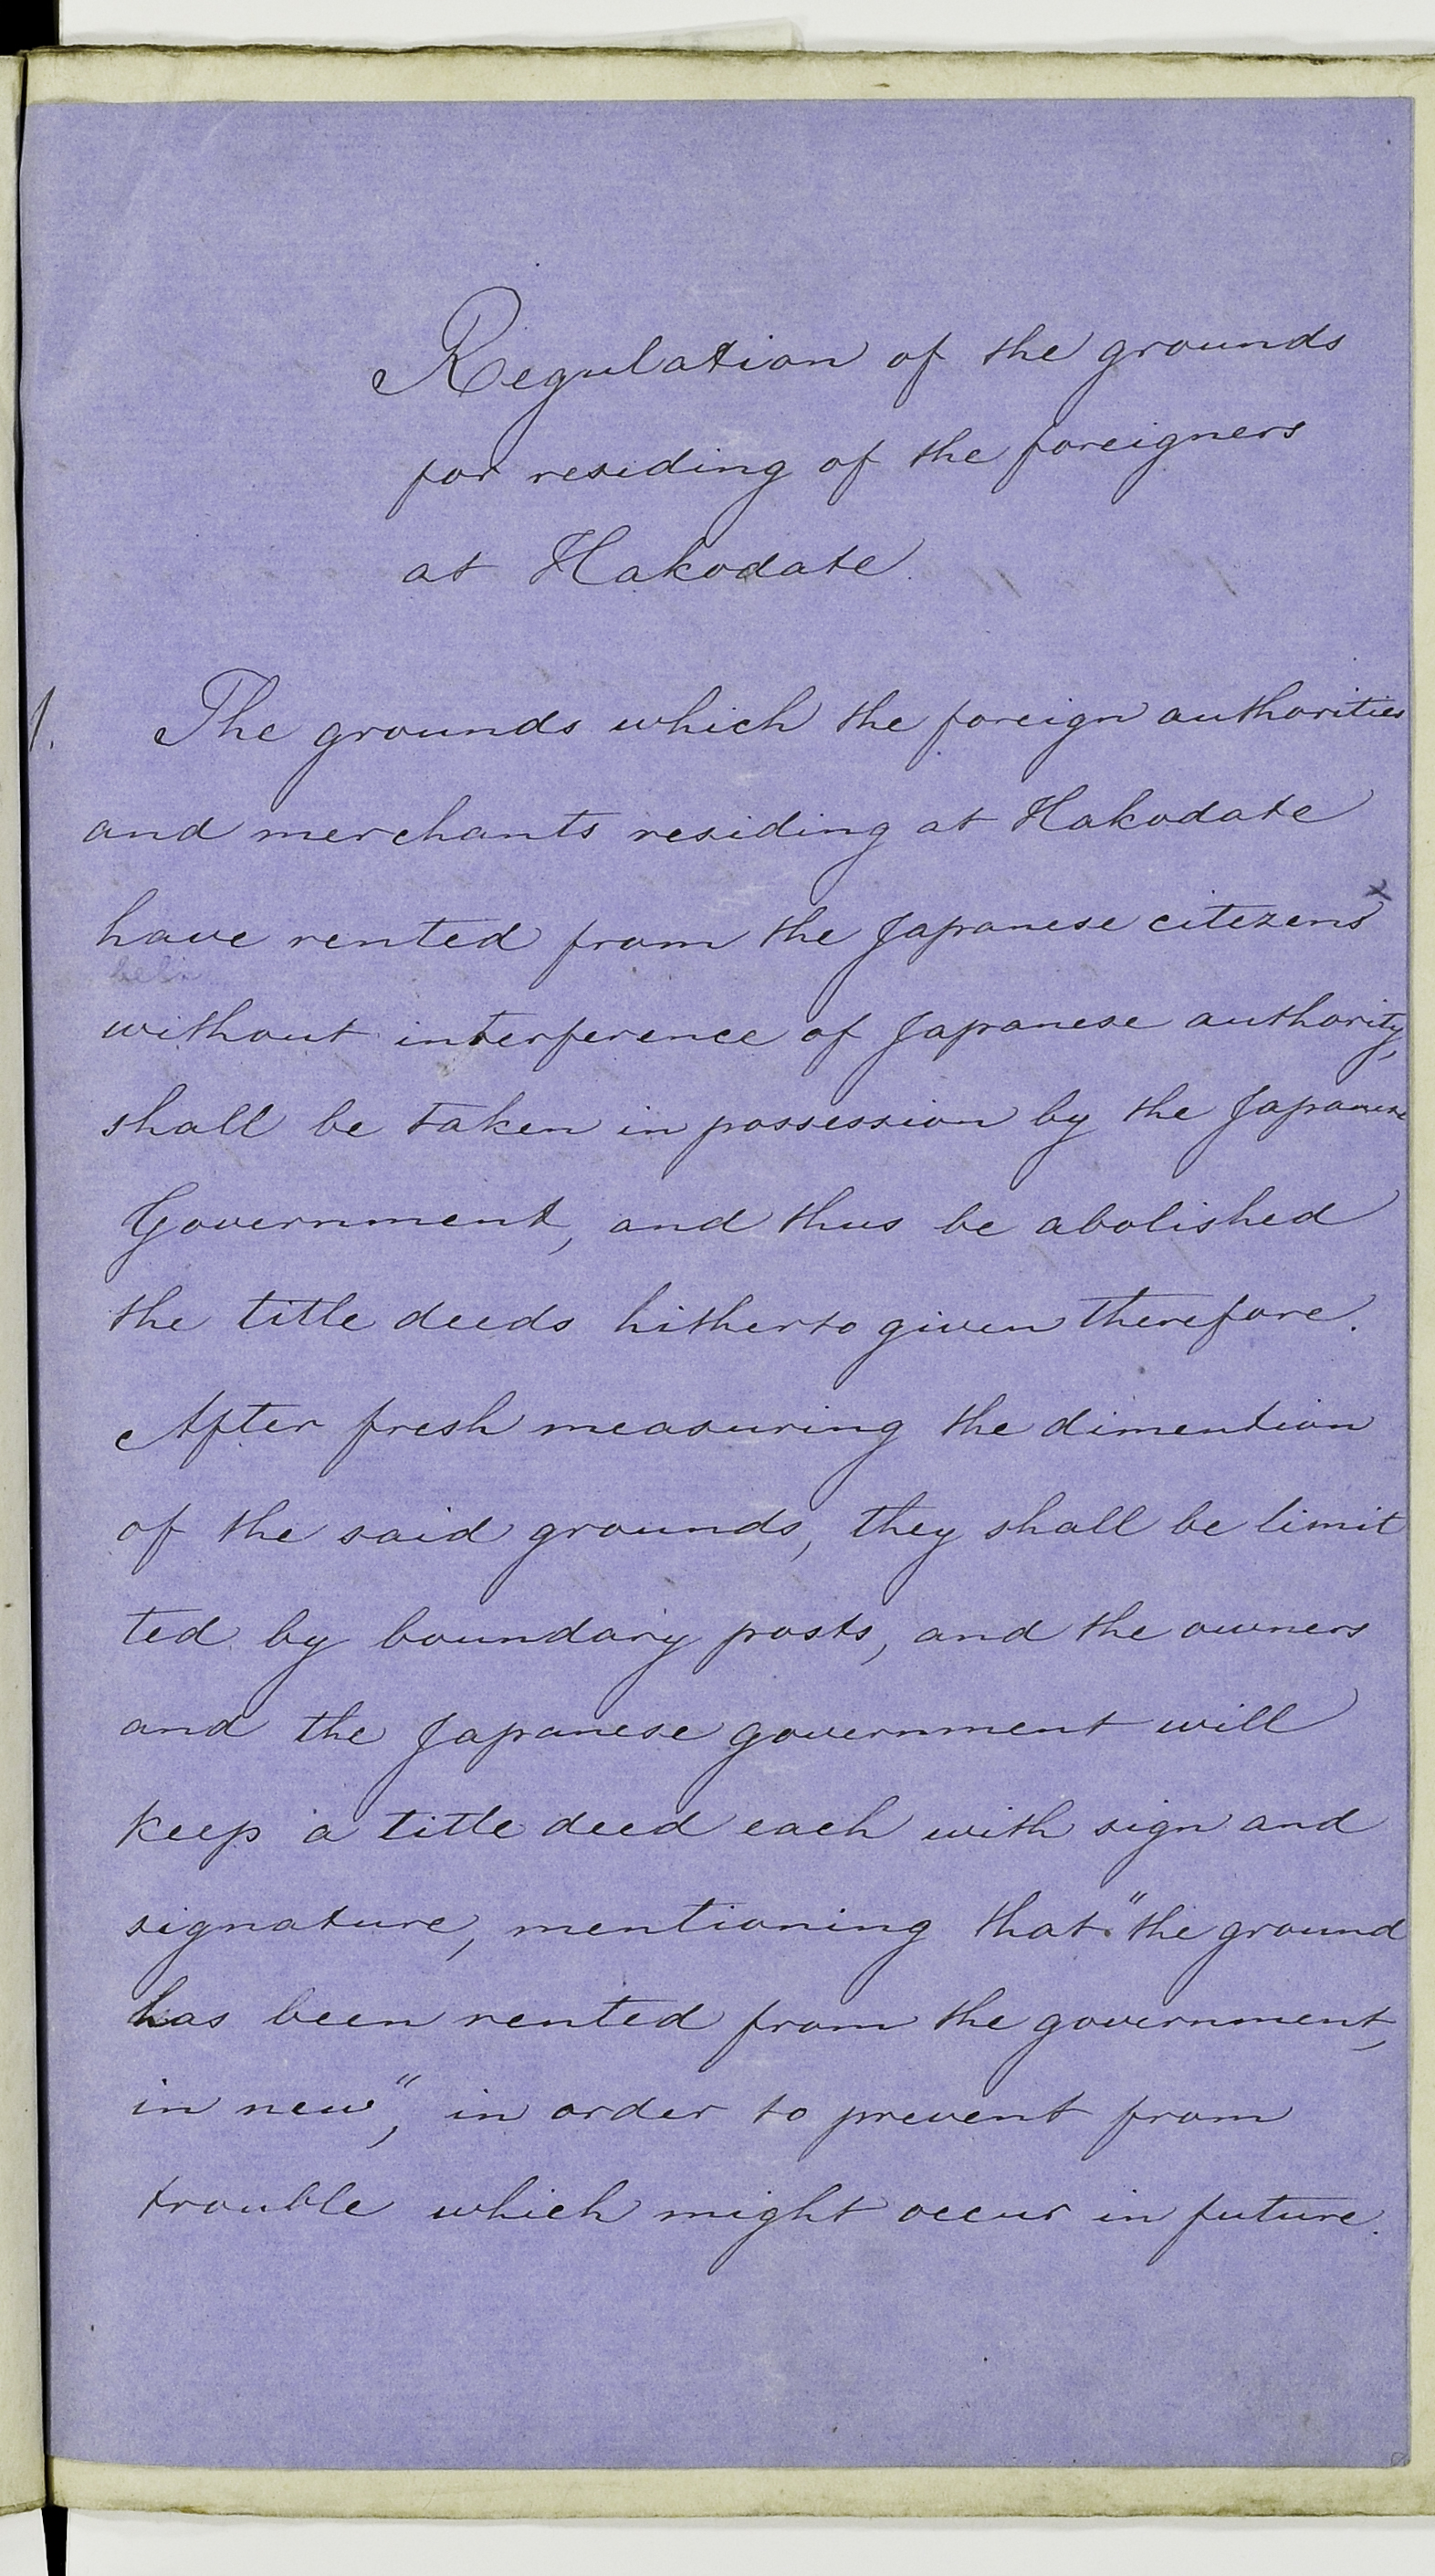 Regulation of the grounds
for residing of the foreigners
at Hakodate.
1. The grounds which the foreign authorities
and merchants residing at Hakodate
have rented from the Japanese citezens x
without interference of Japanese authority,
shall be taken in possession by the Japanese
Government, and thus be abolished
the title deeds hitherto given therefore.
After fresh measuring the dimention
of the said grounds, they shall be limit
ted by boundary posts, and the owners
and the Japanese government will
keep a title deed each with sign and
signature, mentioning that "the ground
has been rented from the government,
in new", in order to prevent from
trouble which might occur in future.